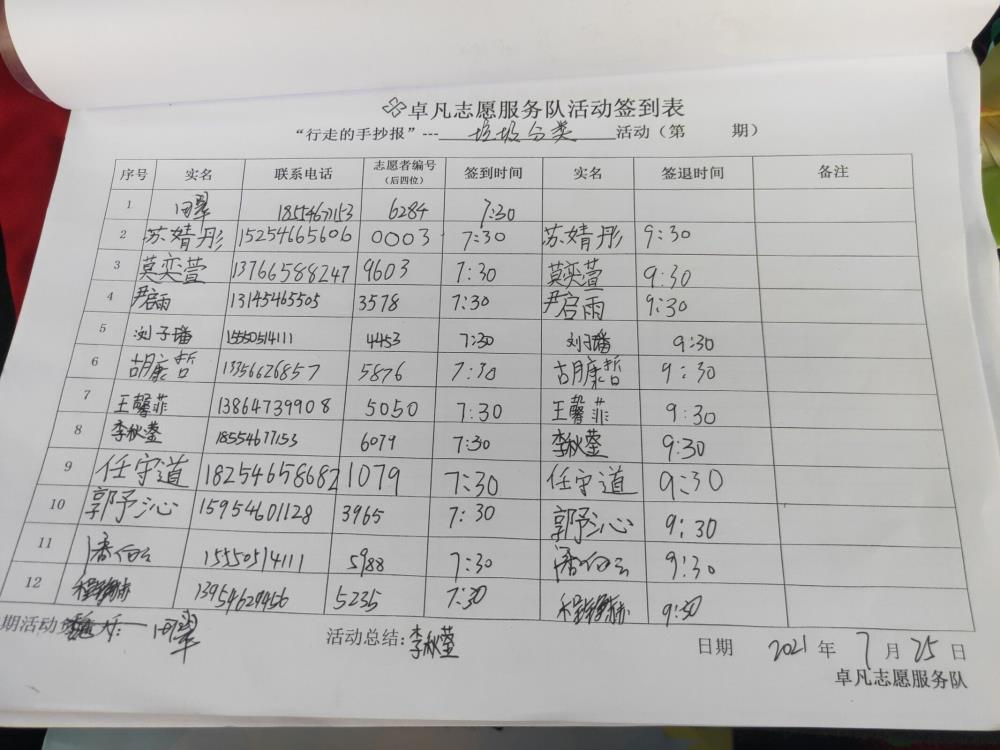 卓凡志愿服务队活动签到表
“行走的手抄报”---垃圾分类活动（第 期）
序号 实名 联系电话 志愿者编号（后四位） 签到时间 实名 签退时间 备注
1 闫翠 18554677153 6284 7:30
2 苏婧彤 15254665606 0003 7:30 苏婧彤 9:30
3 莫奕萱 13766588247 9603 7:30 莫奕萱 9:30
4 尹启雨 13145465505 3578 7:30 尹启雨 9:30
5 刘子璠 15550514111 4453 7:30 刘子璠 9:30
6 胡康哲 13356626857 5876 7:30 胡康哲 9:30
7 王馨菲 13864739908 5050 7:30 王馨菲 9:30
8 李秋蓥 18554677153 6079 7:30 李秋蓥 9:30
9 任守道 18254658682 1079 7:30 任守道 9:30
10 郭予沁 15954601128 3965 7:30 郭予沁 9:30
11 潘向云 15550514111 5988 7:30 潘向云 9:30
12 13954629456 5235 7:30 9:30
期活动 闫翠 活动总结：李秋蓥 日期 2021 年 7 月 25 日
卓凡志愿服务队